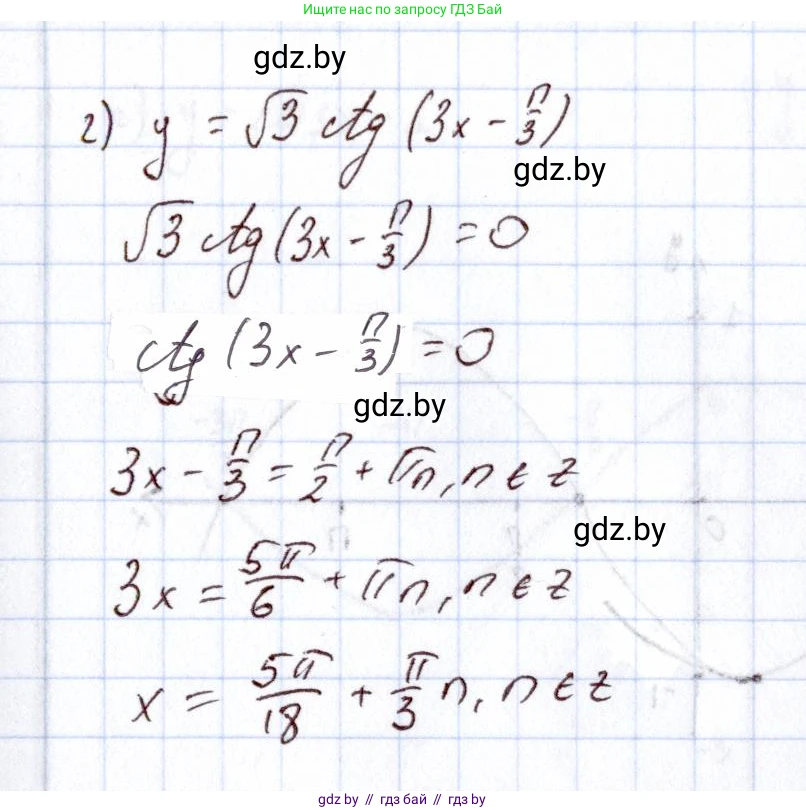 Ищите нас по запросу ГДЗ Бай
gdz.by
г) y = √3 ctg (3x - π/3)
gdz.by
√3 ctg (3x - π/3) = 0
ctg (3x - π/3) = 0
gdz.by
3x - π/3 = π/2 + πn, n ∈ z
gdz.by
3x = 5π/6 + πn, n ∈ z
x = 5π/18 + π/3 n, n ∈ z
gdz.by // гдз бай // gdz.by